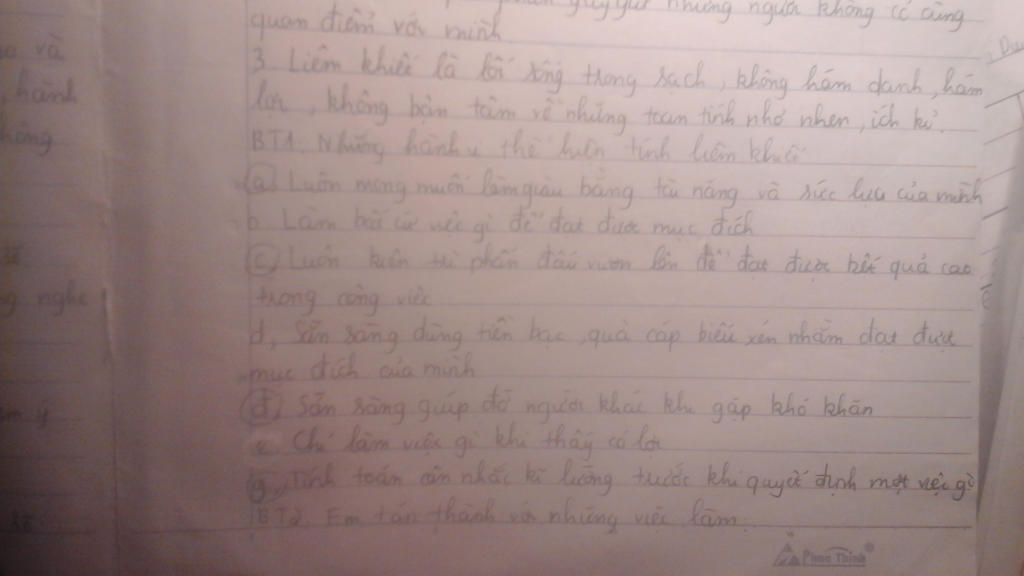 những người không có cùng
quan điểm với mình.
3. Liêm khiết là lối sống trong sạch, không hám danh, hám
lợi, không bận tâm về những toan tính nhỏ nhen, ích kỉ.
BT1. Những hành vi thể hiện tính liêm khiết
a, Luôn mong muốn làm giàu bằng tài năng và sức lực của mình
b. Làm bất cứ việc gì để đạt được mục đích
c, Luôn kiên trì phấn đấu vươn lên để đạt được kết quả cao
trong công việc
d, Sẵn sàng dùng tiền bạc, quà cáp biếu xén nhằm đạt được
mục đích của mình
đ, Sẵn sàng giúp đỡ người khác khi gặp khó khăn
e. Chỉ làm việc gì khi thấy có lợi
g, Tính toán cân nhắc kĩ lưỡng trước khi quyết định một việc gì
BT2. Em tán thành với những việc làm
và
, hành
không
nghe
ý